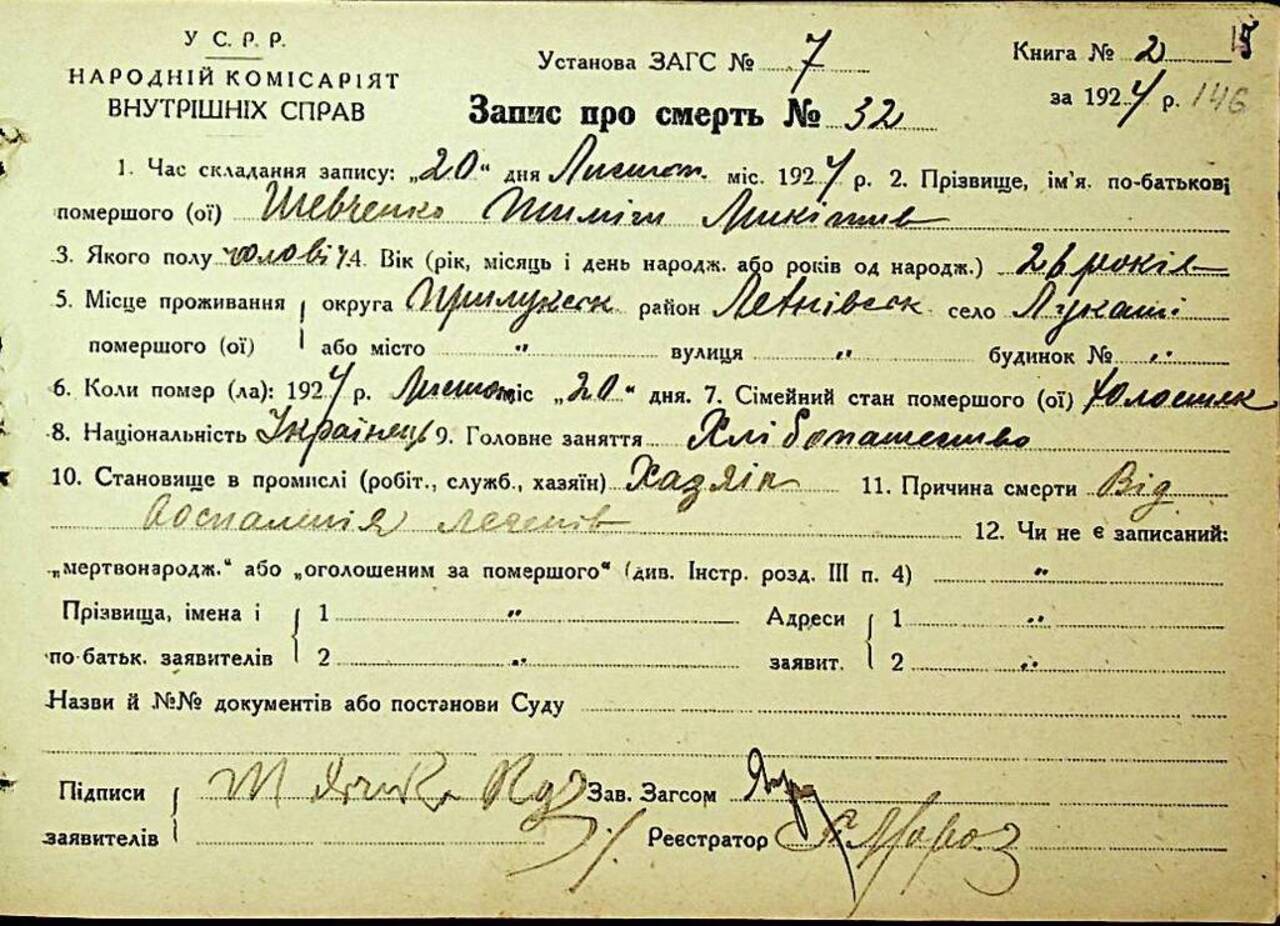 У С. Р. Р.
НАРОДНІЙ КОМІСАРІЯТ
ВНУТРІШНІХ СПРАВ
Установа ЗАГС № 7
Книга № 2
за 1924 р. 146
Запис про смерть № 32
1. Час складання запису: „20“ дня Листоп. міс. 1924 р. 2. Прізвище, ім'я. по-батькові
помершого (ої) Шевченко
3. Якого полу чоловіч 4. Вік (рік, місяць і день народж. або років од народж.) 26 років
5. Місце проживання округа Прилукськ район село Лукаші
помершого (ої) або місто " вулиця " будинок № "
6. Коли помер (ла): 1924 р. Листоп міс „20“ дня. 7. Сімейний стан помершого (ої) Холостяк
8. Національність Українець 9. Головне заняття Хлібопашество
10. Становище в промислі (робіт., служб., хазяїн) Хазяін 11. Причина смерти Від
воспаления легенів 12. Чи не є записаний:
„мертвонародж.“ або „оголошеним за помершого“ (див. Інстр. розд. III п. 4) "
Прізвища, імена і 1 " Адреси 1 "
по-батьк. заявителів 2 " заявит. 2 "
Назви й №№ документів або постанови Суду
Підписи Зав. Загсом
заявителів Реєстратор Мороз